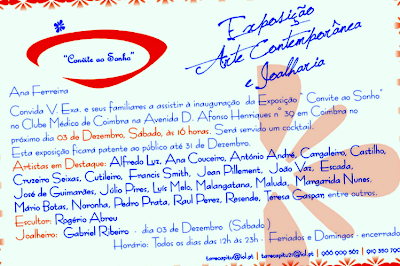 Exposição
Arte Contemporânea
e Joalharia
"Convite ao Sonho"
Ana Ferreira
Convida V. Exa. e seus familiares a assistir à inauguração da Exposição "Convite ao Sonho"
no Clube Médico de Coimbra na Avenida D. Afonso Henriques nº 39 em Coimbra no
próximo dia 03 de Dezembro, Sábado, às 16 horas. Será servido um cocktail.
Esta exposição ficará patente ao público até 31 de Dezembro.
Artistas em Destaque: Alfredo Luz, Ana Couceiro, António André, Cargaleiro, Castilho,
Cruzeiro Seixas, Cutileiro, Francis Smith, Jean Pillement, João Vaz, Escada,
José de Guimarães, Júlio Pires, Luís Melo, Malangatana, Maluda, Margarida Nunes,
Mário Botas, Noronha, Pedro Prata, Raul Perez, Resende, Teresa Gaspar, entre outros.
Escultor: Rogério Abreu
Joalheiro: Gabriel Ribeiro - dia 03 de Dezembro (Sábado)
Horário: Todos os dias das 12h às 23h - Feriados e Domingos - encerrado